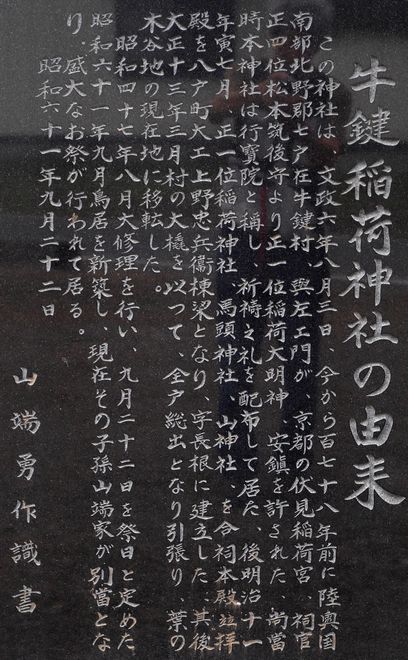 牛鍵稲荷神社の由来
この神社は、文政六年八月三日、今から百七十八年前に陸奥国
南部北野郡七戸在牛鍵村 與左エ門が 京都の伏見稲荷宮、祠官
正四位松本筑後守より正一位稲荷大明神、安鎮を許された、尚當
時本神社は行寶院と称し、祈祷之札を配布して居た、後明治十一
年寅七月 正一位稲荷神社、馬頭神社、山神社、を合祠本殿並拝
殿を八戸町大工上野忠兵衞棟梁となり、字長根に建立した、其後
大正十三年三月村の大橇を以つて、全戸総出となり引張り、葉の
木谷地の現在地に移転した。
昭和四十七年八月大修理を行い、九月二十二日を祭日と定めた
昭和六十一年九月鳥居を新築し、現在その子孫山端家が別當とな
り、盛大なお祭が行われて居る。
昭和六十一年九月二十二日
山端勇作識書